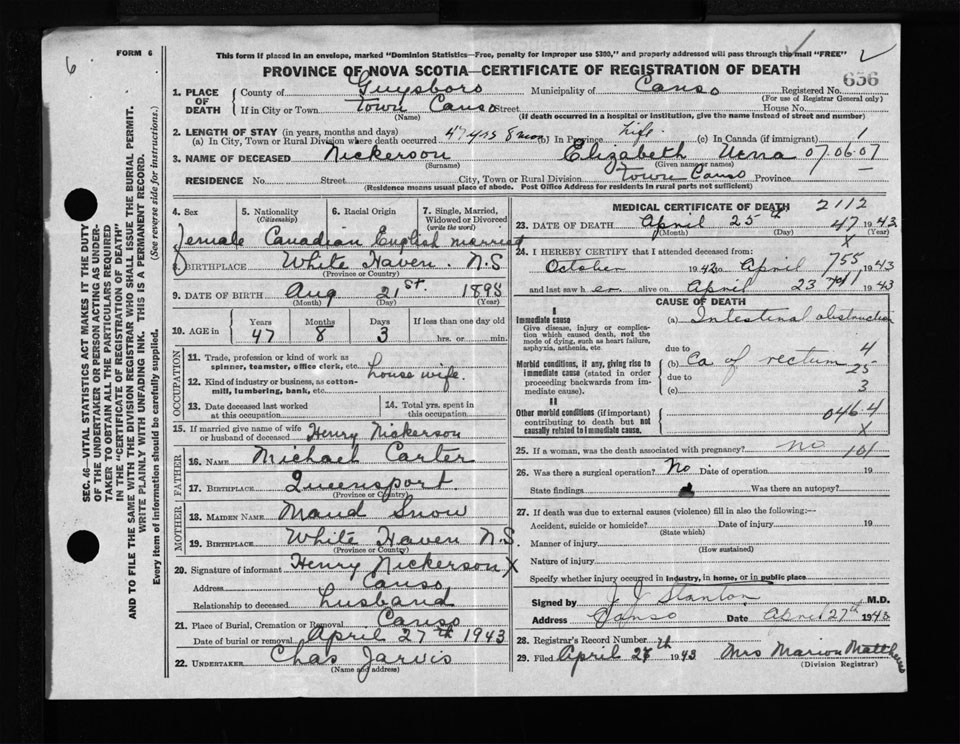 FORM 6
This form if placed in an envelope, marked "Dominion Statistics—Free, penalty for improper use $300," and properly addressed will pass through the mail "FREE"
6
PROVINCE OF NOVA SCOTIA—CERTIFICATE OF REGISTRATION OF DEATH
656
1. PLACE OF DEATH
County of Guysboro Municipality of Canso Registered No.
(For use of Registrar General only)
If in City or Town Town Canso Street House No.
(Name) (If death occurred in a hospital or institution, give the name instead of street and number)
2. LENGTH OF STAY (in years, months and days)
(a) In City, Town or Rural Division where death occurred 47 yrs 8 mon (b) In Province Life (c) In Canada (if immigrant) 1
3. NAME OF DECEASED Nickerson Elizabeth 07.06.07
(Surname) (Given name or names)
RESIDENCE No. Street City, Town or Rural Division Town Canso Province
(Residence means usual place of abode. Post Office Address for residents in rural parts not sufficient)
4. Sex
5. Nationality (Citizenship)
6. Racial Origin
7. Single, Married, Widowed or Divorced (write the word)
Female Canadian English married
8. BIRTHPLACE White Haven. N.S
(Province or Country)
9. DATE OF BIRTH Aug 21st. 1895
(Month) (Day) (Year)
10. AGE in
Years Months Days If less than one day old
47 8 3 hrs. or min.
OCCUPATION
11. Trade, profession or kind of work as spinner, teamster, office clerk, etc. House wife.
12. Kind of industry or business, as cotton-mill, lumbering, bank, etc.
13. Date deceased last worked at this occupation
14. Total yrs. spent in this occupation
15. If married give name of wife or husband of deceased Henry Nickerson
FATHER
16. Name Michael Carter
17. Birthplace Queensport.
(Province or Country)
MOTHER
18. Maiden Name Maud Snow
19. Birthplace White Haven N.S.
(Province or Country)
20. Signature of informant Henry Nickerson X
Address Canso
Relationship to deceased Husband
21. Place of Burial, Cremation or Removal Canso
Date of burial or removal April 27th 1943
22. UNDERTAKER Chas Jarvis
(Name and address)
MEDICAL CERTIFICATE OF DEATH 2112
23. DATE OF DEATH April 25th 47 1943
(Month) (Day) X (Year)
24. I HEREBY CERTIFY that I attended deceased from:
October 1942 to April 755 1943
and last saw her alive on April 23 741 1943
CAUSE OF DEATH
I
Immediate cause
Give disease, injury or complication which caused death, not the mode of dying, such as heart failure, asphyxia, asthenia, etc
(a) Intestinal obstruction
due to 4
Morbid conditions, if any, giving rise to immediate cause (stated in order proceeding backwards from immediate cause).
(b) Ca of rectum 25
due to
(c) 3
II
Other morbid conditions (if important) contributing to death but not causally related to immediate cause.
046.4
X
25. If a woman, was the death associated with pregnancy? no 101
26. Was there a surgical operation? No Date of operation 19
State findings Was there an autopsy?
27. If death was due to external causes (violence) fill in also the following:—
Accident, suicide or homicide? Date of injury 19
(State which)
Manner of injury
(How sustained)
Nature of injury
Specify whether injury occurred in industry, in home, or in public place
Signed by J J Stanton M.D.
Address Canso Date April 27th 1943
28. Registrar's Record Number
29. Filed April 27th 1943 Mrs Marion Matthews
(Division Registrar)
SEC. 46—VITAL STATISTICS ACT MAKES IT THE DUTY
OF THE UNDERTAKER OR PERSON ACTING AS UNDER-
TAKER TO OBTAIN ALL THE PARTICULARS REQUIRED
IN THE "CERTIFICATE OF REGISTRATION OF DEATH"
AND TO FILE THE SAME WITH THE DIVISION REGISTRAR WHO SHALL ISSUE THE BURIAL PERMIT.
WRITE PLAINLY WITH UNFADING INK. THIS IS A PERMANENT RECORD.
Every item of information should be carefully supplied. (See reverse side for instructions.)